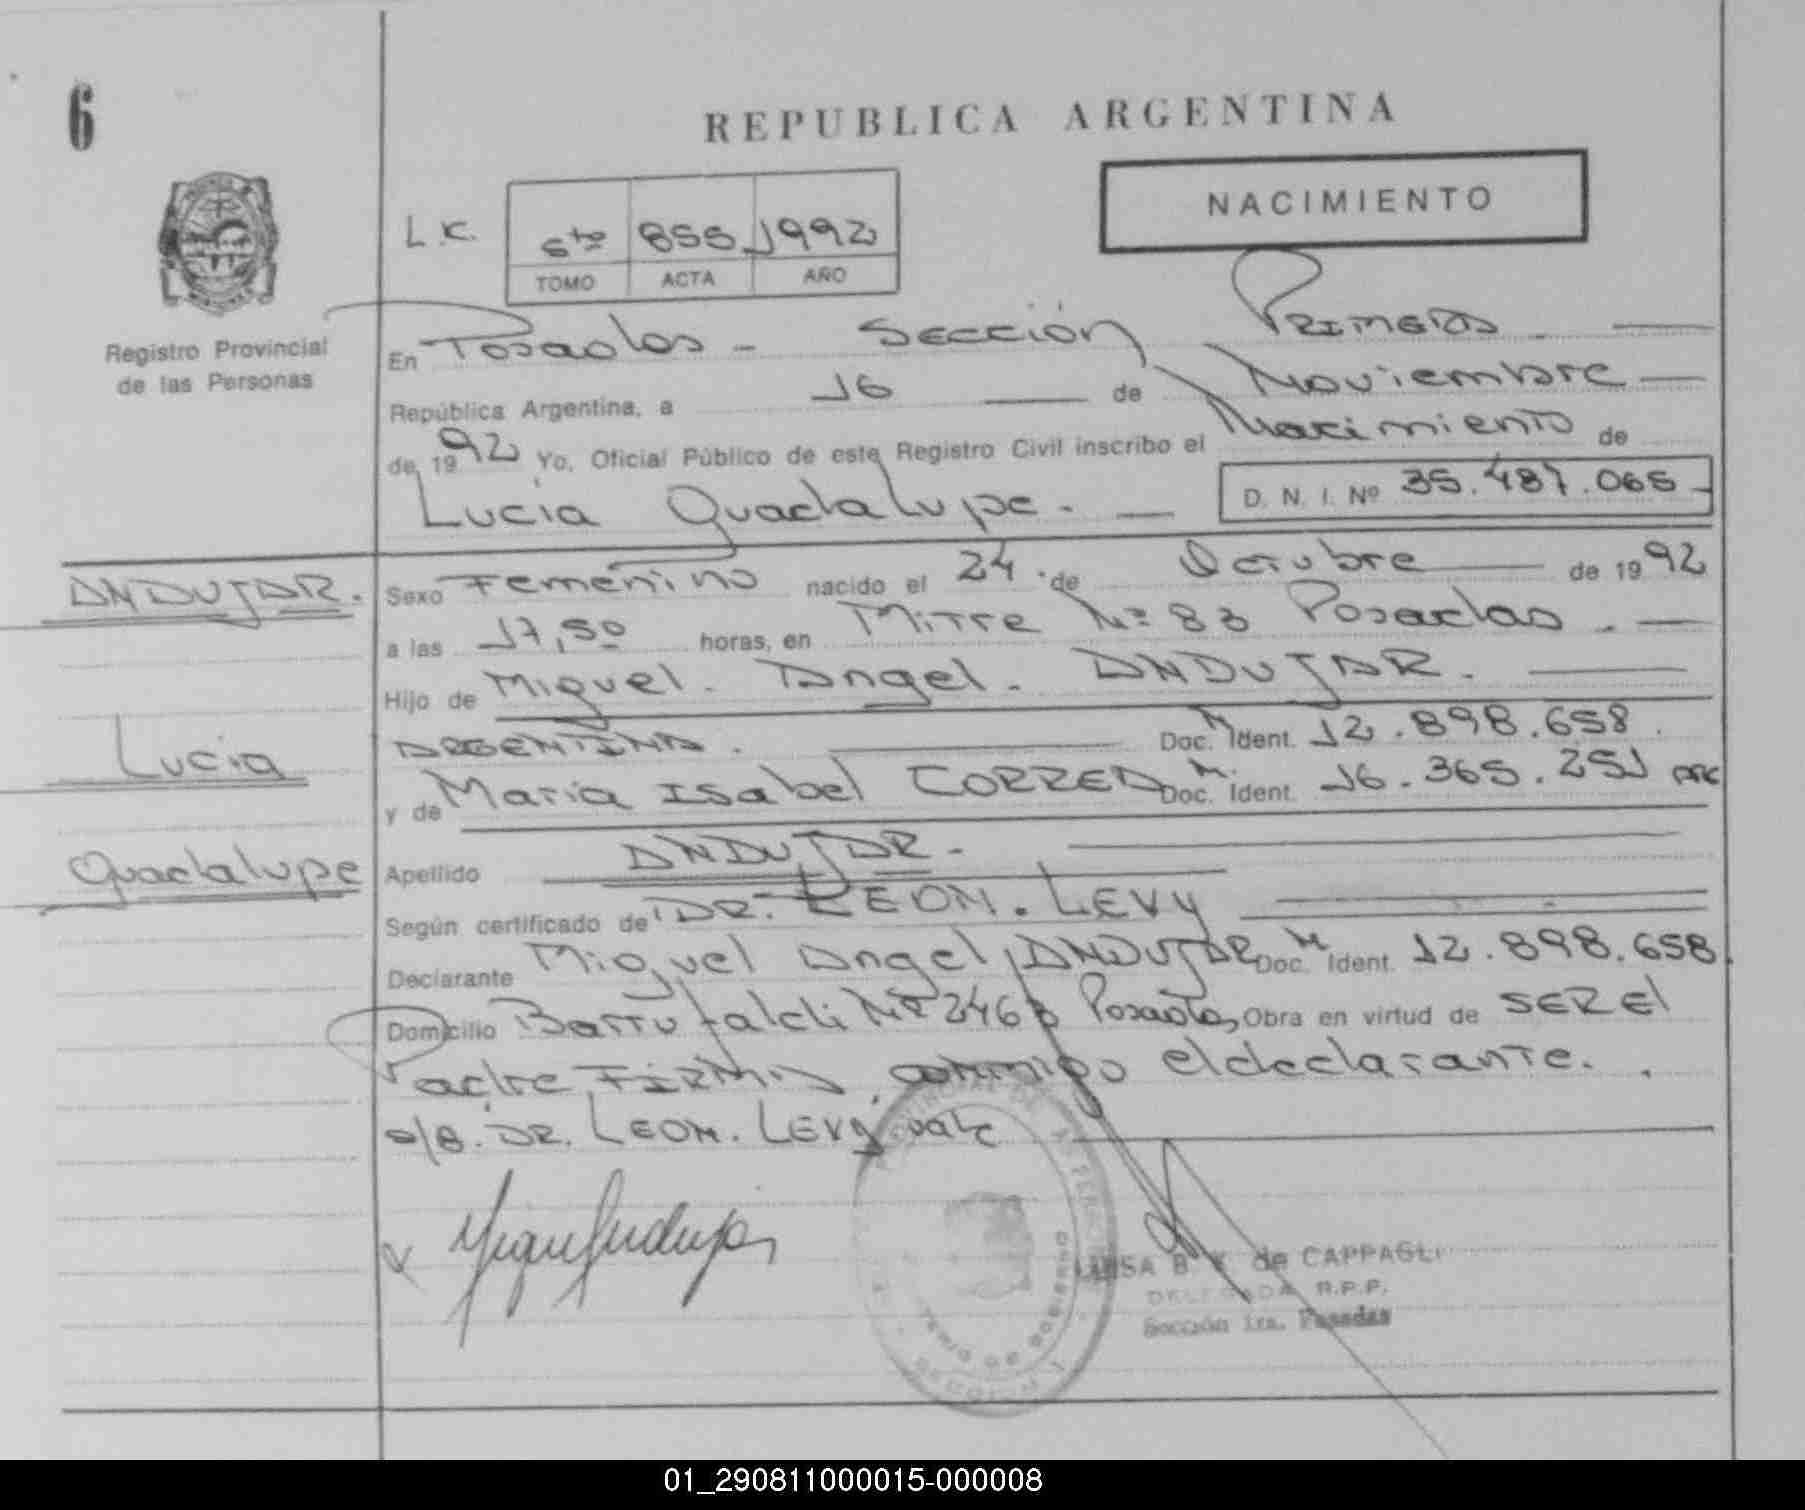 6
REPUBLICA ARGENTINA
NACIMIENTO
L.C.
6to 855 1992
TOMO ACTA AÑO
Registro Provincial
de las Personas
En Posadas - Sección Primera
República Argentina, a 16 de Noviembre
de 1992 Yo, Oficial Público de este Registro Civil inscribo el Nacimiento de
Lucia Guadalupe. D. N. I. Nº 35.487.065
ANDUJAR.
Lucia
Guadalupe
Sexo Femenino nacido el 24 de Octubre de 1992
a las 17,50 horas, en Mitre Nº 83 Posadas.
Hijo de Miguel Angel. ANDUJAR.
ARGENTINA. Doc. N Ident. 12.898.658.
y de Maria Isabel CORREA Doc. N. Ident. 16.365.251
Apellido ANDUJAR.
Según certificado de DR. LEON. LEVY
Declarante Miguel Angel ANDUJAR Doc. N Ident. 12.898.658.
Domicilio Nº Posadas, Obra en virtud de SER El
Padre FIRMA conmigo el declarante.
s/B. DR. LEON. LEVY vale
de CAPPAGLI
DELEGADA R.P.P.
Sección 1ra. Posadas
01_290811000015-000008